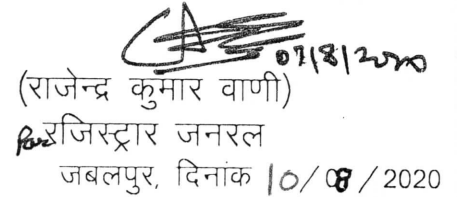 07/8/2020
(राजेन्द्र कुमार वाणी)
रजिस्ट्रार जनरल
जबलपुर, दिनांक 10/08/2020